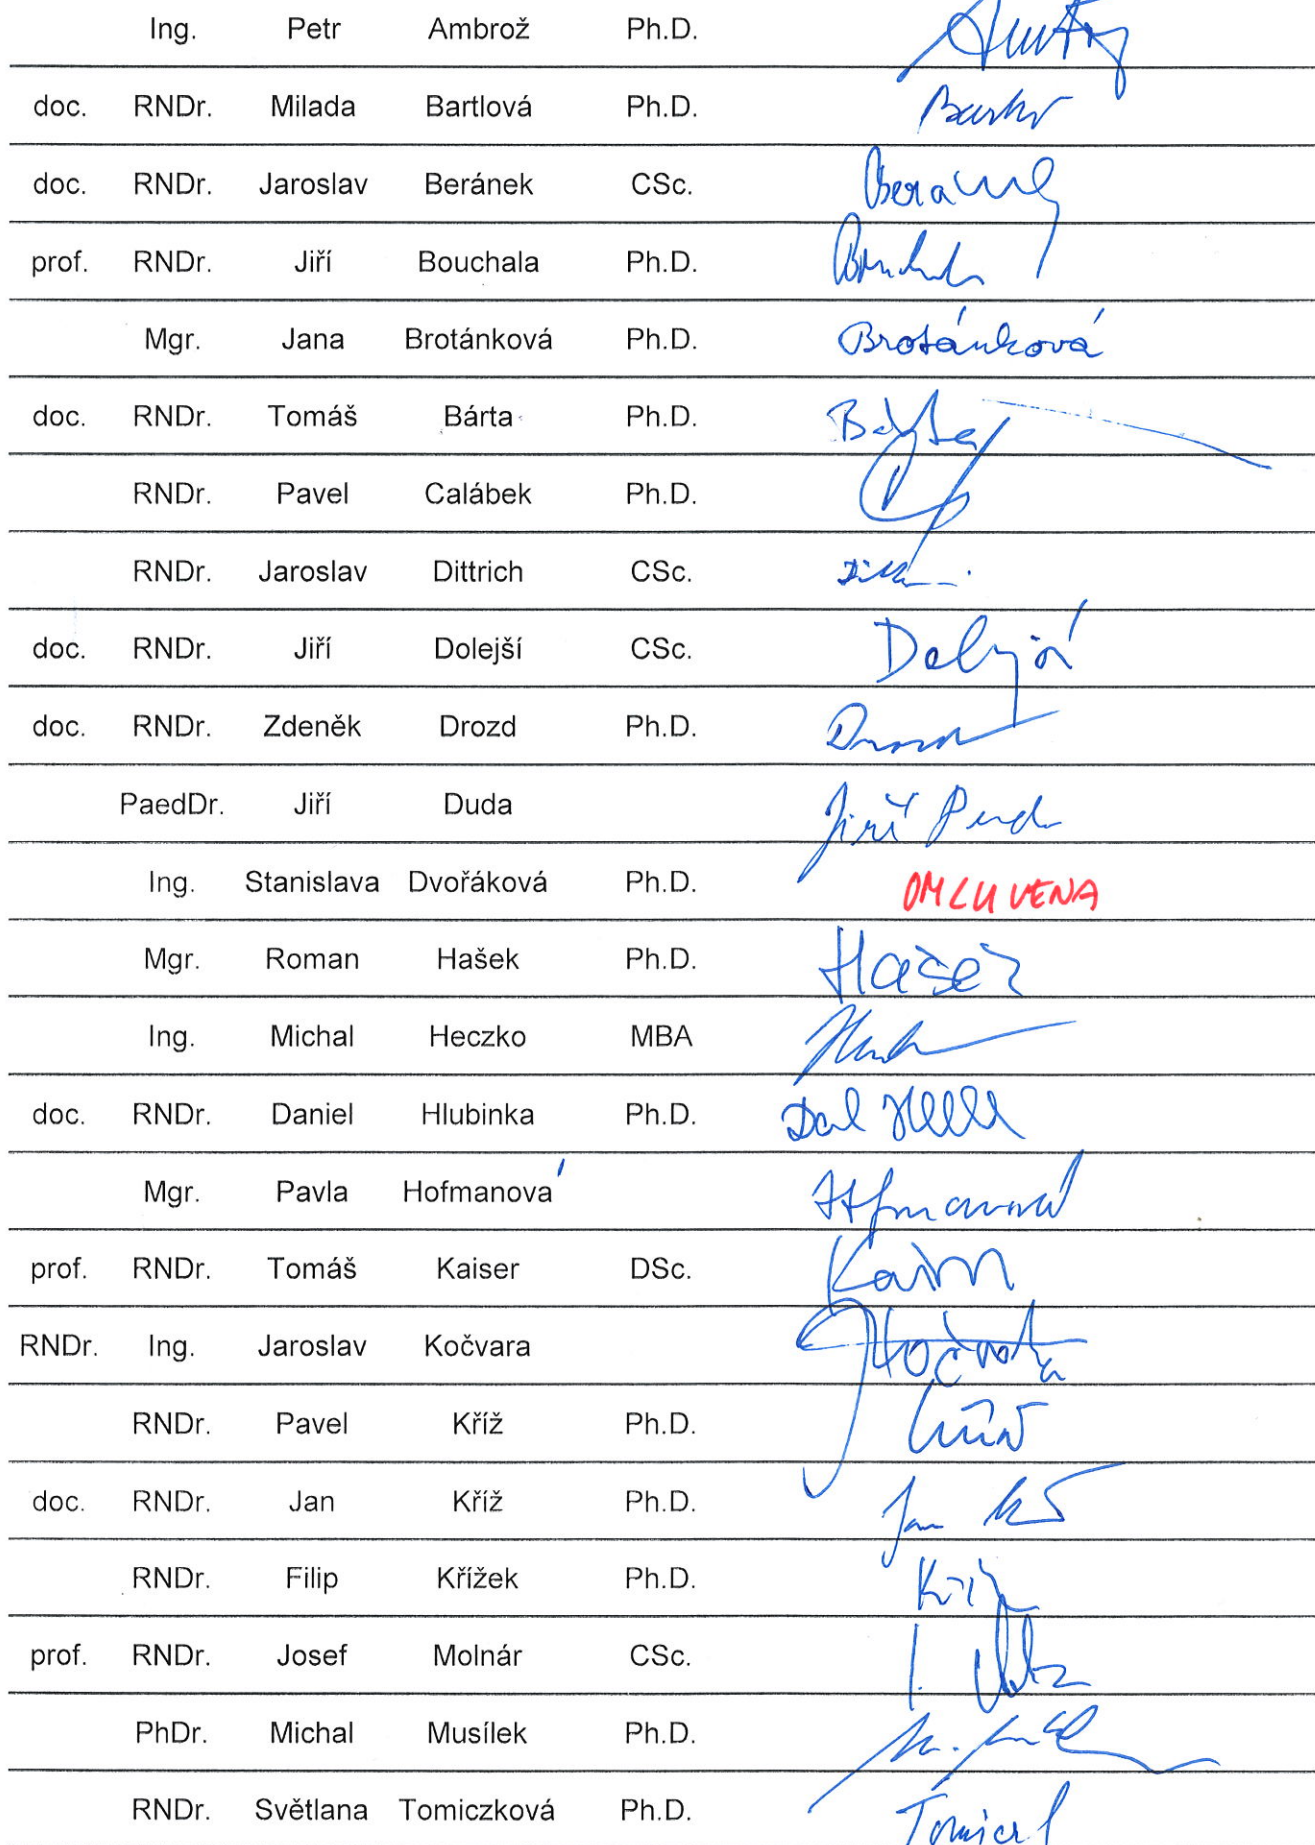 Ing. Petr Ambrož Ph.D.
doc. RNDr. Milada Bartlová Ph.D.
doc. RNDr. Jaroslav Beránek CSc.
prof. RNDr. Jiří Bouchala Ph.D.
Mgr. Jana Brotánková Ph.D. Brotánková
doc. RNDr. Tomáš Bárta Ph.D.
RNDr. Pavel Calábek Ph.D.
RNDr. Jaroslav Dittrich CSc.
doc. RNDr. Jiří Dolejší CSc.
doc. RNDr. Zdeněk Drozd Ph.D.
PaedDr. Jiří Duda Jiří
Ing. Stanislava Dvořáková Ph.D. OMLUVENA
Mgr. Roman Hašek Ph.D. Hašek
Ing. Michal Heczko MBA
doc. RNDr. Daniel Hlubinka Ph.D.
Mgr. Pavla Hofmanová
prof. RNDr. Tomáš Kaiser DSc.
RNDr. Ing. Jaroslav Kočvara
RNDr. Pavel Kříž Ph.D.
doc. RNDr. Jan Kříž Ph.D.
RNDr. Filip Křížek Ph.D.
prof. RNDr. Josef Molnár CSc.
PhDr. Michal Musílek Ph.D.
RNDr. Světlana Tomiczková Ph.D.